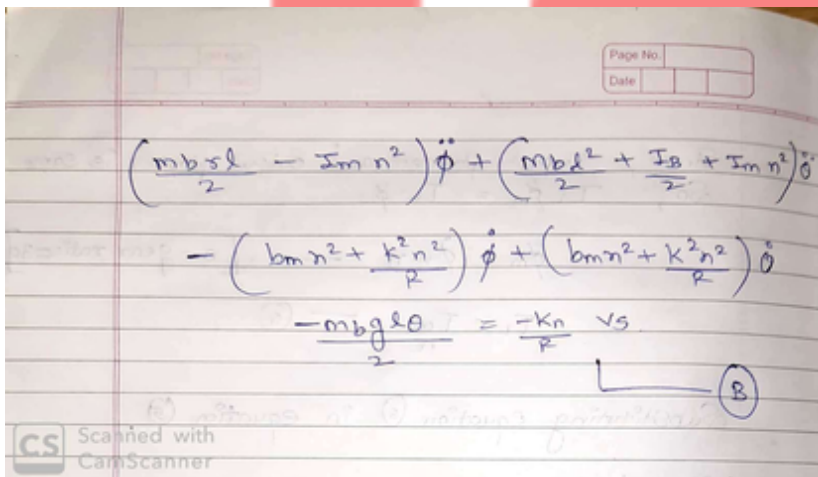 Page No.
Date
(mbrl/2 - Im n²) φ̈ + (mbl²/2 + IB/2 + Im n²) θ̈
- (bm n² + k²n²/R) φ̇ + (bm n² + k²n²/R) θ̇
-mbglθ/2 = -Kn/R Vs
B
CS Scanned with
CamScanner